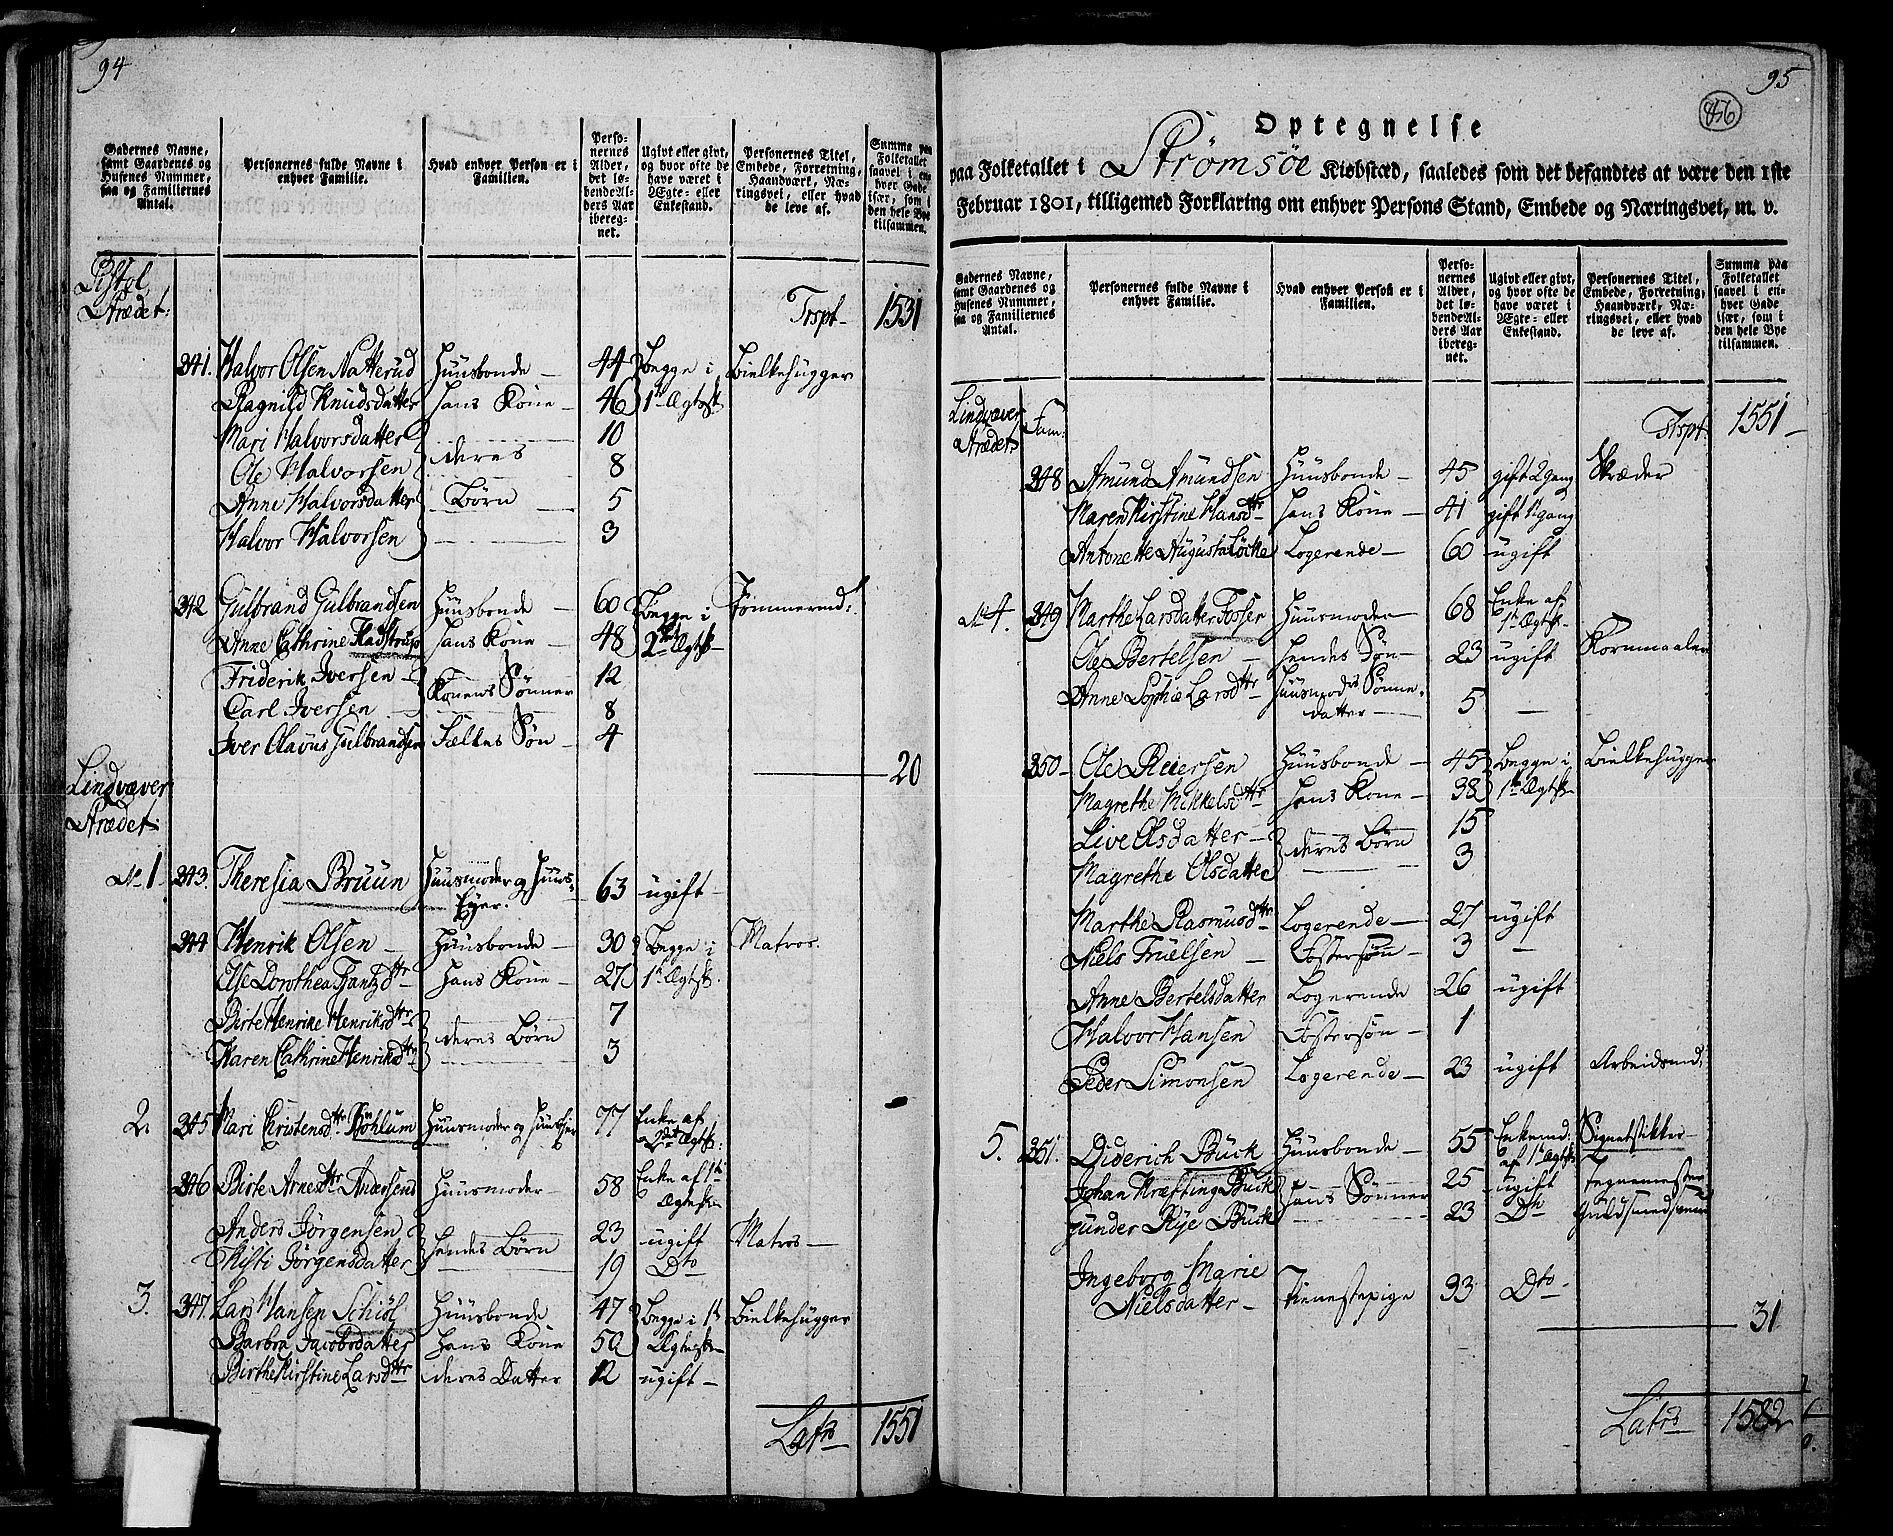 94
Gadernes Navne, samt Gaardenes og Husenes Nummer, saa og Familiernes Antal.
Personernes fulde Navne i enhver Familie.
Hvad enhver Person er i Familien.
Personernes Alder, det løbende Alders Aar iberegnet.
Ugivt eller givt, og hvor ofte de have været i Ægte- eller Enkestand.
Personernes Titel, Embede, Forretning, Haandværk, Næringsvei, eller hvad de leve af.
Summa paa Folketallet saavel i enhver Gade især, som i den hele Bye tilsammen.
Pistol
Strædet:
Trspt 1531
341. Halvor Olsen Natterud Huusbonde 44 Begge i Bielkehugger
Ragnild Knudsdatter Hans Kone 46 1te Ægtesk
Mari Halvorsdatter 10
Ole Halvorsen deres 8
Anne Halvorsdatter Børn 5
Halvor Halvorsen 3
342 Gulbrand Gulbrandsen Huusbonde 60 Begge i Tømmermd:
Anne Cathrine Hans Kone 48 2det Ægtesk
Friderik Iversen 12
Konens Sønner
Carl Iversen 8
Iver Olavus Gulbrandsen Fælles Søn 4
20
Lindvæver
Strædet:
No 1 343. Theresia Bruun Huusmoder og Huus- 63 ugift
Eyer.
344 Henrik Olsen Huusbonde 30 Begge i Matros.
Else Dorothea Frantzdtr Hans Kone 27 1te Ægtesk.
Birte Henrike Henriksdtr 7
deres Børn
Karen Cathrine Henriksdtr 3
2. 345 Mari Christensdtr Huusmoder og Huuseier 77 Enke af
2det Ægtesk:
346 Birte Arnesdtr Andersens Huusmoder 58 Enke af 1te
Ægtesk
Anders Jørgensen 23 ugift Matros
Hendes Børn
Kisti Jørgensdatter 19 Dto
3. 347. Lars Hansen Schiøl Huusbonde 47 Begge i 1te Bielkehugger
Barbra Jacobsdatter Hans Kone 50 Ægtesk
Birthe Kirstine Larsdtr deres Datter 12 ugift
Latus 1551
95
856
Optegnelse
paa Folketallet i Strømsøe Kiøbstæd, saaledes som det befandtes at være den 1ste
Februar 1801, tilligemed Forklaring om enhver Persons Stand, Embede og Næringsvei, m. v.
Gadernes Navne, samt Gaardenes og Husenes Nummer, saa og Familiernes Antal.
Personernes fulde Navne i enhver Familie.
Hvad enhver Person er i Familien.
Personernes Alder, det løbende Alders Aar iberegnet.
Ugivt eller givt, og hvor ofte de have været i Ægte- eller Enkestand.
Personernes Titel, Embede, Forretning, Haandværk, Næringsvei, eller hvad de leve af.
Summa paa Folketallet saavel i enhver Gade især, som i den hele Bye tilsammen.
Lindvæver Fam:
Strædet:
Trspt. 1551
348 Amund Amundsen Huusbonde 45 gift 2 gang Skræder
Maren Kirstine Hansdtr Hans Kone 41 gift 1te gang
Antonette Augusta Løcke Logerende 60 ugift
No 4. 349 Marthe Larsdatter Fosser Huusmoder 68 Enke af
1te Ægtesk.
Ole Bertelsen Hendes Søn 23 ugift Kornmaaler
Anne Sophie Larsdtr Huusmoders Sønne-
datter 5
350 Ole Reiersen Huusbonde 45 Begge i Bielkehugger
Magrethe Mikkelsdtr Hans Kone 38 1te Ægtesk
Live Olsdatter 15
deres Børn
Magrethe Olsdatter 3
Marthe Rasmusdtr Logerende 27 ugift
Niels Truelsen Fostersøn 3
Anne Bertelsdatter Logerende 26 ugift
Halvor Hansen Fostersøn 1
Peder Simonsen Logerende 23 ugift Arbeidsmd;
5. 351. Diderich Buck Huusbonde 55 Enkemd: Signetstikker
af 1te Ægtesk
Johan Kræfting Buck 25 ugift Tegnemester
Hans Sønner
Gunder Rye Buck 23 Dto Guldsmedsvend
Ingeborg Marie
Nielsdatter Tienestepige 93 Dto
31
Latus 1582